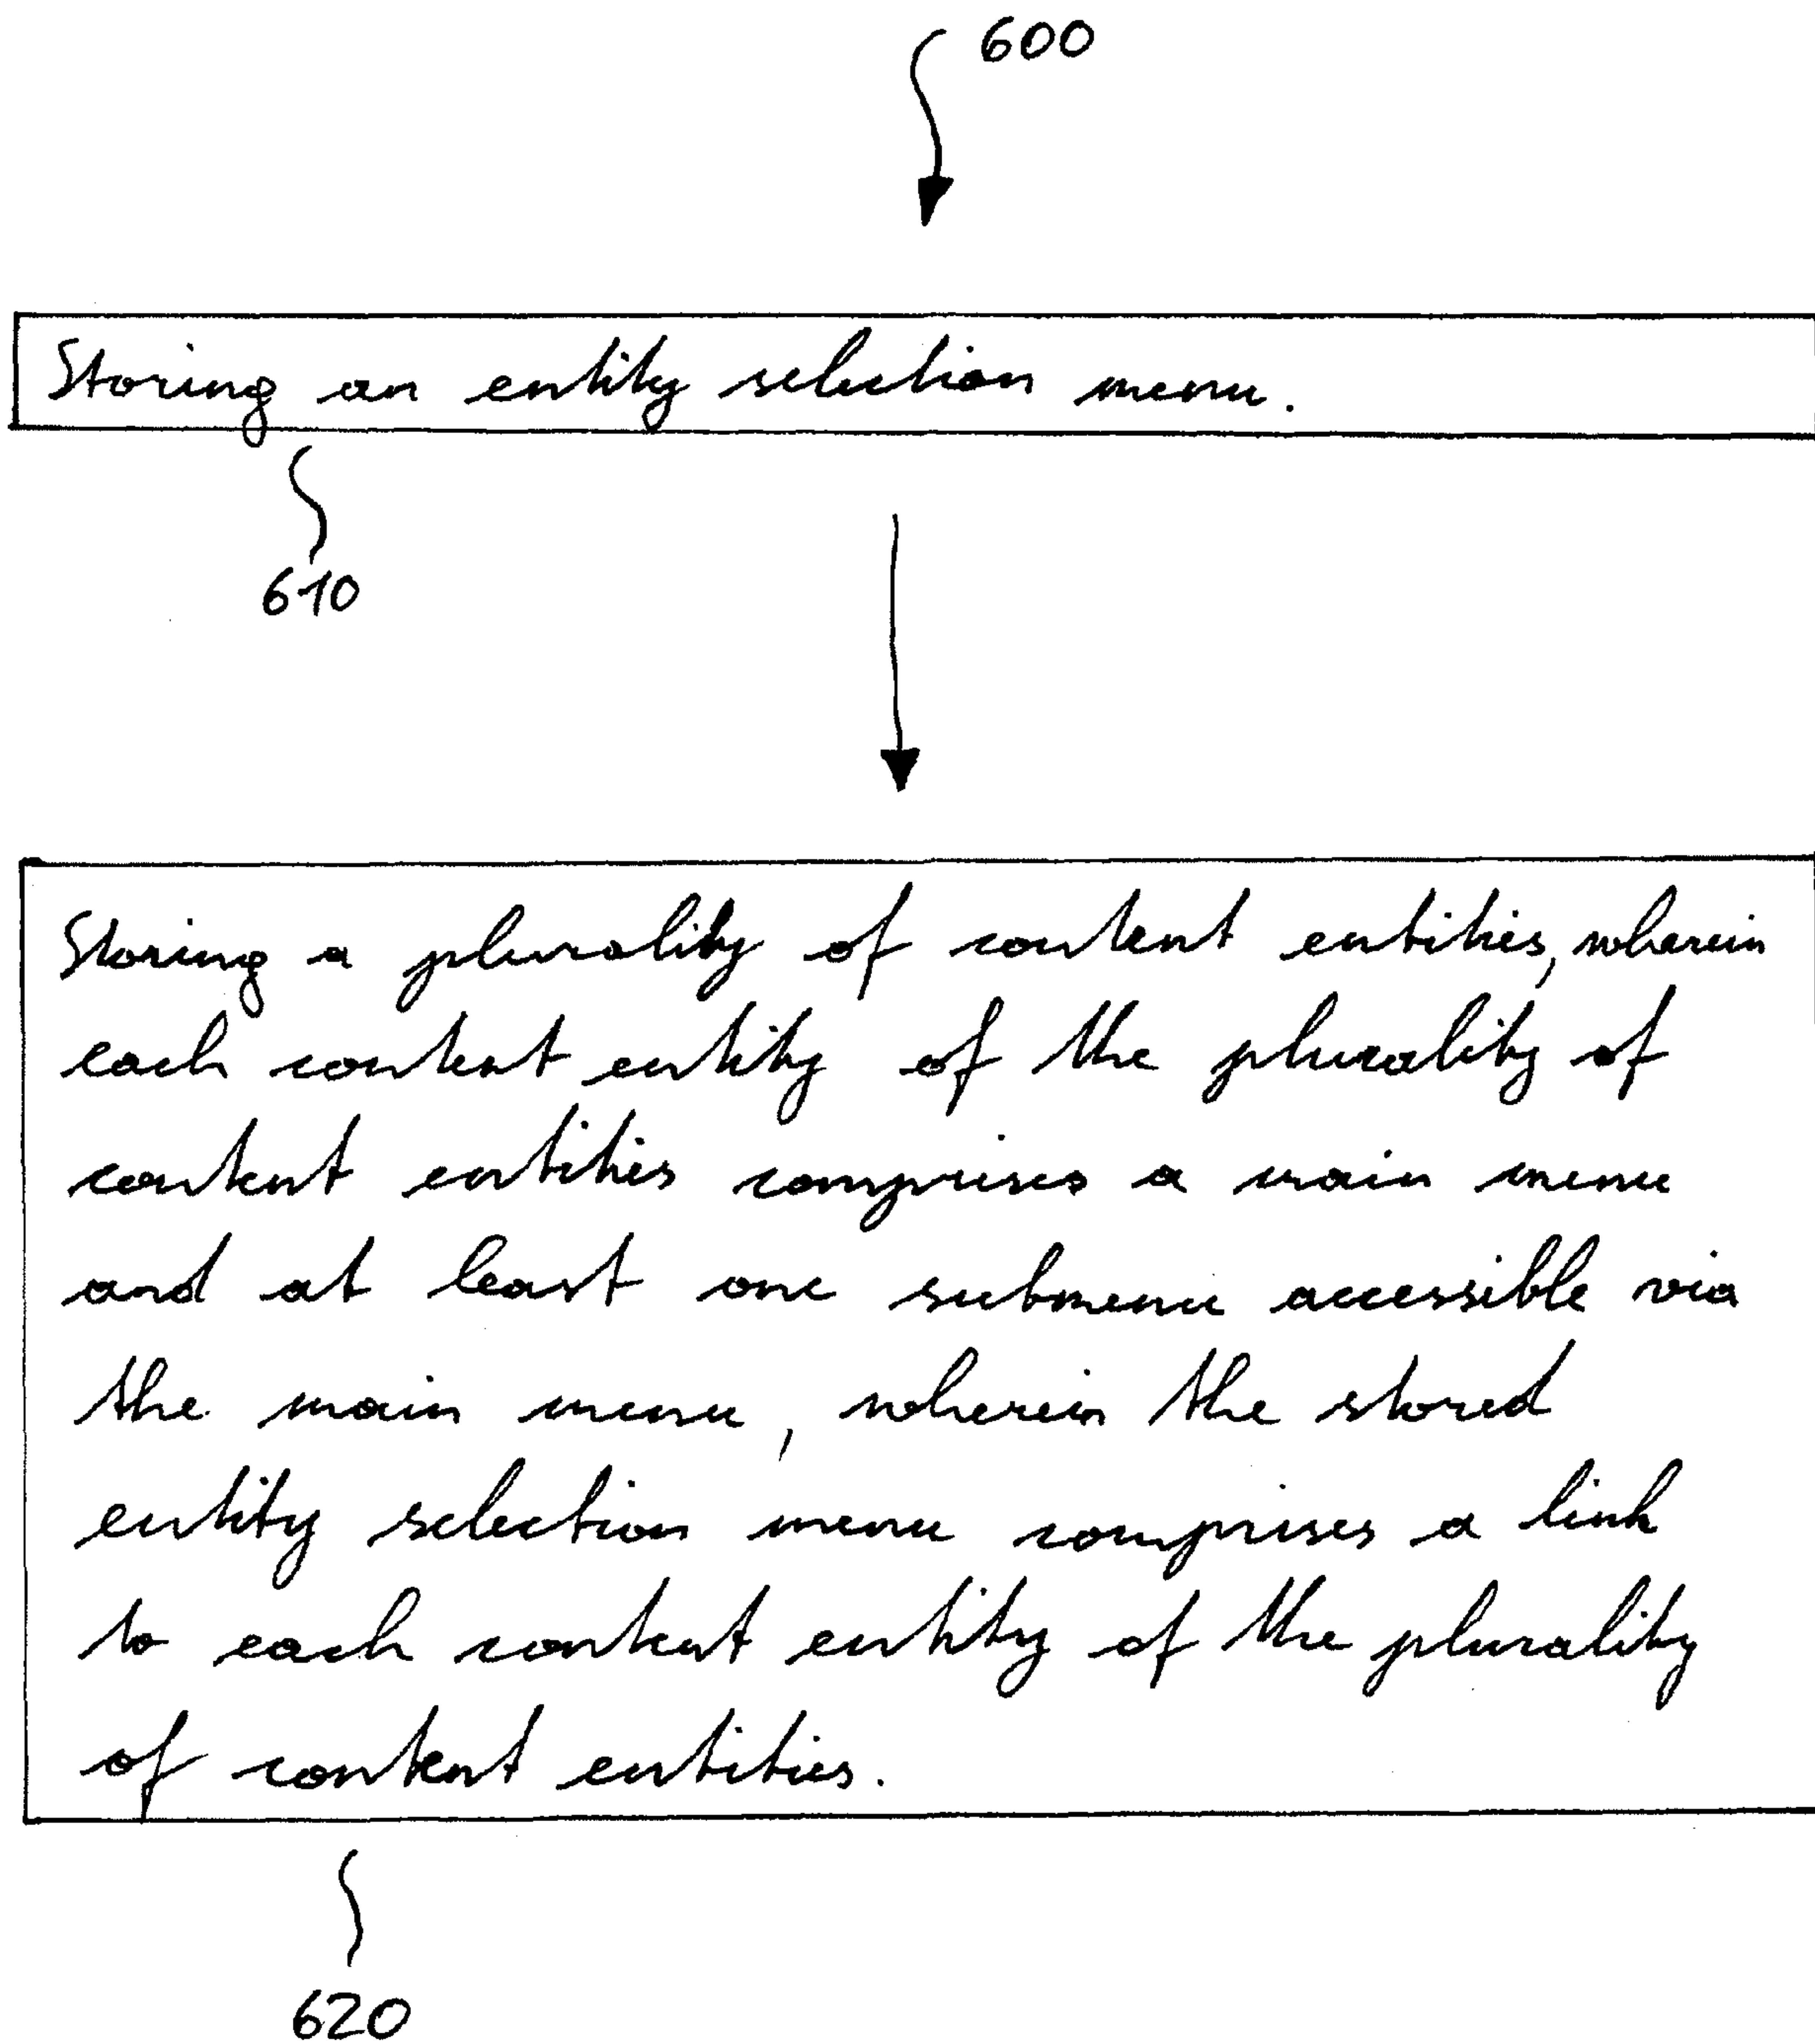 600
Storing an entity selection menu.
610
Storing a plurality of content entities, wherein
each content entity of the plurality of
content entities comprises a main menu
and at least one submenu accessible via
the main menu, wherein the stored
entity selection menu comprises a link
to each content entity of the plurality
of content entities.
620